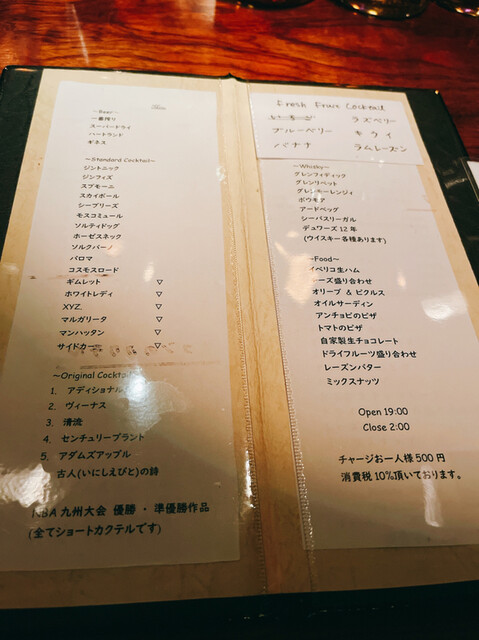 ~Beer~
一番搾り
スーパードライ
ハートランド
ギネス
~Standard Cocktail~
ジントニック
ジンフィズ
スプモーニ
スカイボール
シーブリーズ
モスコミュール
ソルティドッグ
ホーゼスネック
ソルクバーノ
パロマ
コスモスロード
ギムレット ▽
ホワイトレディ ▽
XYZ ▽
マルガリータ ▽
マンハッタン ▽
サイドカー ▽
~Original Cocktail
1. アディショナル
2. ヴィーナス
3. 清流
4. センチュリープラント
5. アダムズアップル
古人(いにしえびと)の詩
NBA 九州大会 優勝・準優勝作品
(全てショートカクテルです)
Fresh Fruit Cocktail
いちご ラズベリー
ブルーベリー キウイ
バナナ ラムレーズン
~Whisky~
グレンフィディック
グレンリベット
グレンモーレンジィ
ボウモア
アードベッグ
シーバスリーガル
デュワーズ 12 年
(ウイスキー各種あります)
~Food~
イベリコ生ハム
チーズ盛り合わせ
オリーブ & ピクルス
オイルサーディン
アンチョビのピザ
トマトのピザ
自家製生チョコレート
ドライフルーツ盛り合わせ
レーズンバター
ミックスナッツ
Open 19:00
Close 2:00
チャージお一人様 500 円
消費税 10%頂いております。